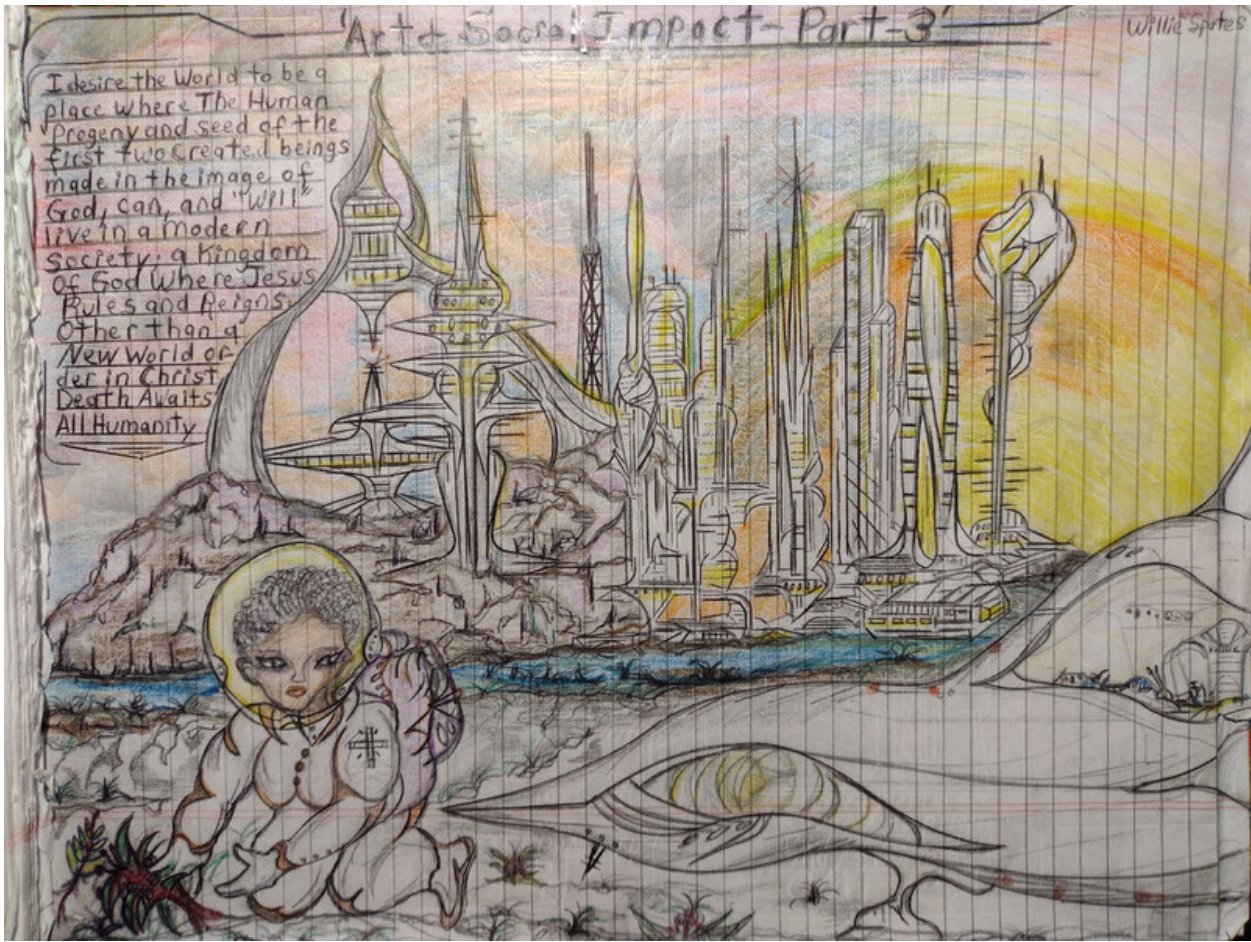 'Art & Social Impact-Part-3'
Willie Sprtes
I desire the World to be a
place where The Human
Progeny and seed of the
first two Created beings
made in the image of
God, can, and "Will"
live in a modern
Society; a Kingdom
Of God Where Jesus
Rules and Reigns.
Other than a
New World Or
der in Christ
Death Awaits
All Humanity